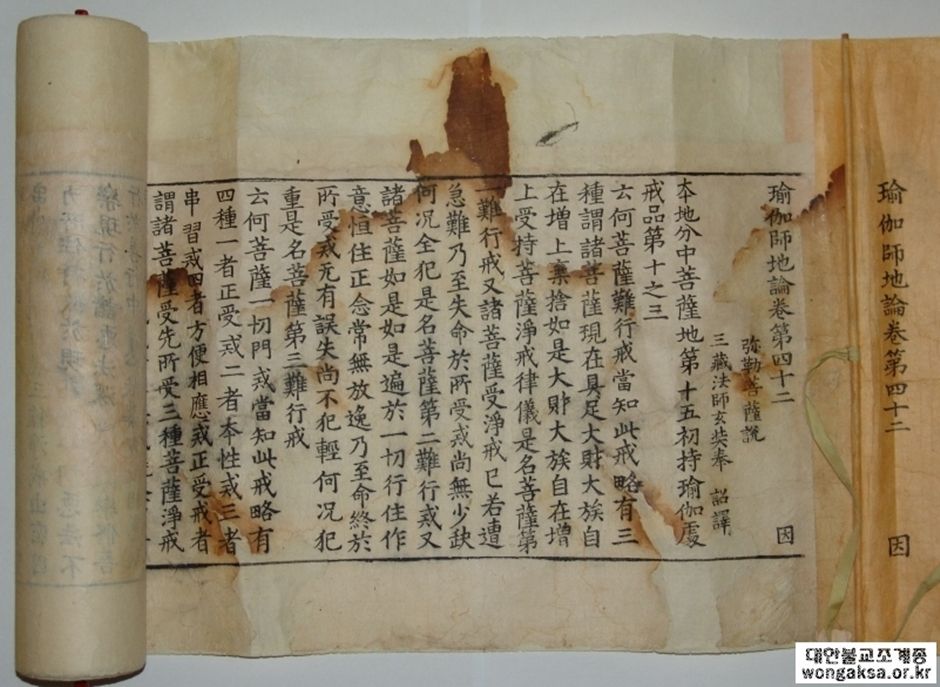 瑜伽師地論卷第四十二 因
瑜伽師地論卷第四十二 因
弥勒菩薩說
三藏法師玄奘奉 詔譯
本地分中菩薩地第十五初持瑜伽處
戒品第十之三
云何菩薩難行戒當知此戒略有三
種謂諸菩薩現在具足大財大族自
在增上棄捨如是大財大族自在增
上受持菩薩淨戒律儀是名菩薩第
一難行戒又諸菩薩受淨戒已若遭
急難乃至失命於所受戒尚無少缺
何况全犯是名菩薩第二難行戒又
諸菩薩如是如是遍於一切行住作
意恒住正念常無放逸乃至命終於
所受戒无有誤失尚不犯輕何况犯
重是名菩薩第三難行戒
云何菩薩一切門戒當知此戒略有
四種一者正受戒二者本性戒三者
串習戒四者方便相應戒正受戒者
謂諸菩薩受先所受三種菩薩淨戒
대안불교조계종
wongaksa.or.kr